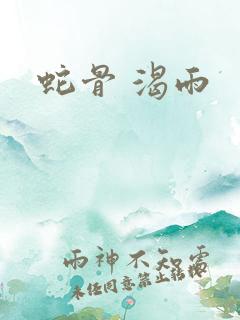 蛇骨 渴雨
雨神不知露
未经同意禁止转载